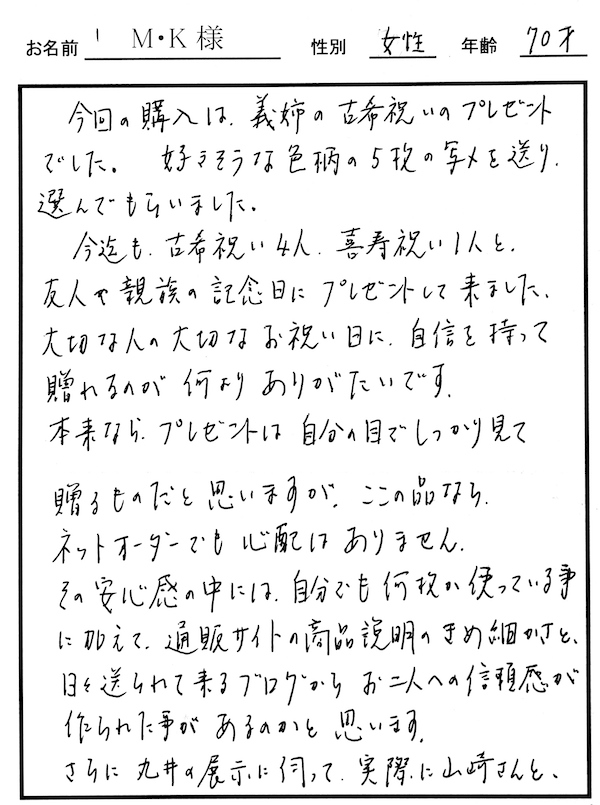 お名前 M・K様 性別 女性 年齢 70才
今回の購入は、義姉の古希祝いのプレゼント
でした。 好きそうな色柄の5枚の写メを送り、
選んでもらいました。
今迄も、古希祝い4人、喜寿祝い1人と、
友人や親族の記念日にプレゼントして来ました、
大切な人の大切なお祝い日に、自信を持って
贈れるのが何よりありがたいです。
本来なら、プレゼントは自分の目でしっかり見て
贈るものだと思いますが、ここの品なら、
ネットオーダーでも心配はありません。
その安心感の中には、自分でも何枚か使っている事
に加えて、通販サイトの商品説明のきめ細かさと、
日々送られて来るブログからお二人への信頼感が
作られた事があるのかと思います。
さらに丸井の展示に伺って、実際に山崎さんと、